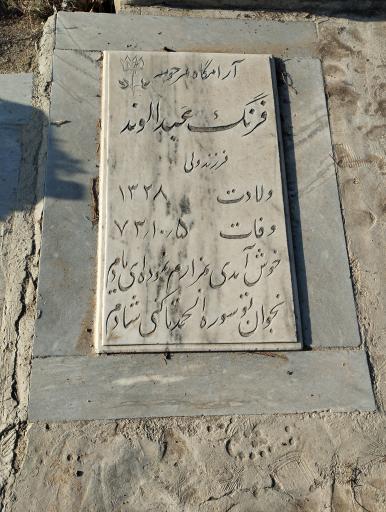 آرامگاه مرحومه
فرنگ عبدالوند
فرزند ولی
ولادت ۱۳۲۸
وفات ۷۳/۱۰/۵
خوش آمدی بمزارم نموده‌ای یادم
بخوان تو سوره الحمد تا کنی شادم